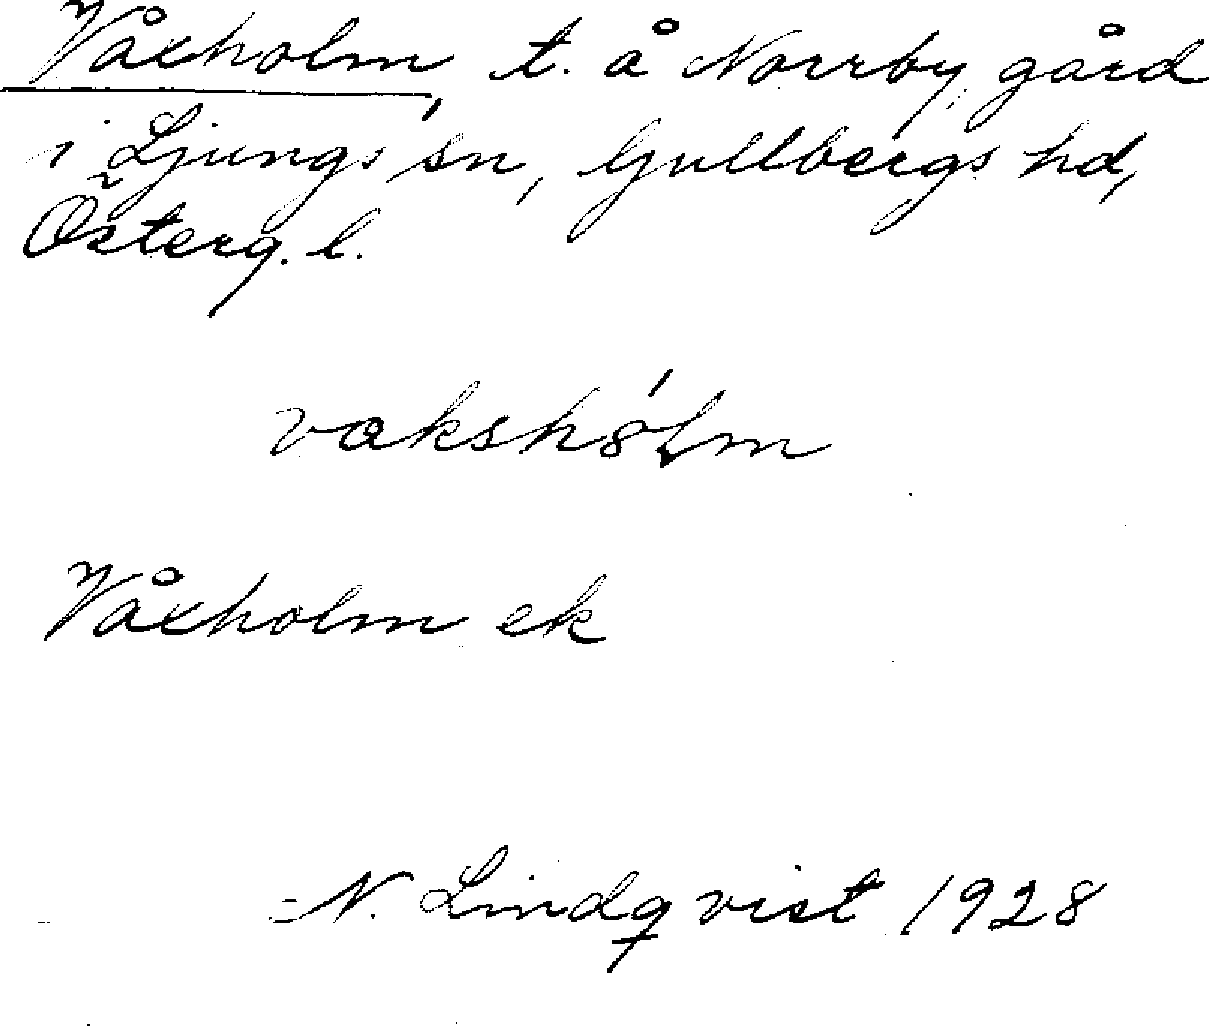 Våxholm, t. å Norrby, gård
i Ljungs sn, Gullbergs hd,
Österg. l.
vaksholm
Våxholm ek
N. Lindqvist 1928